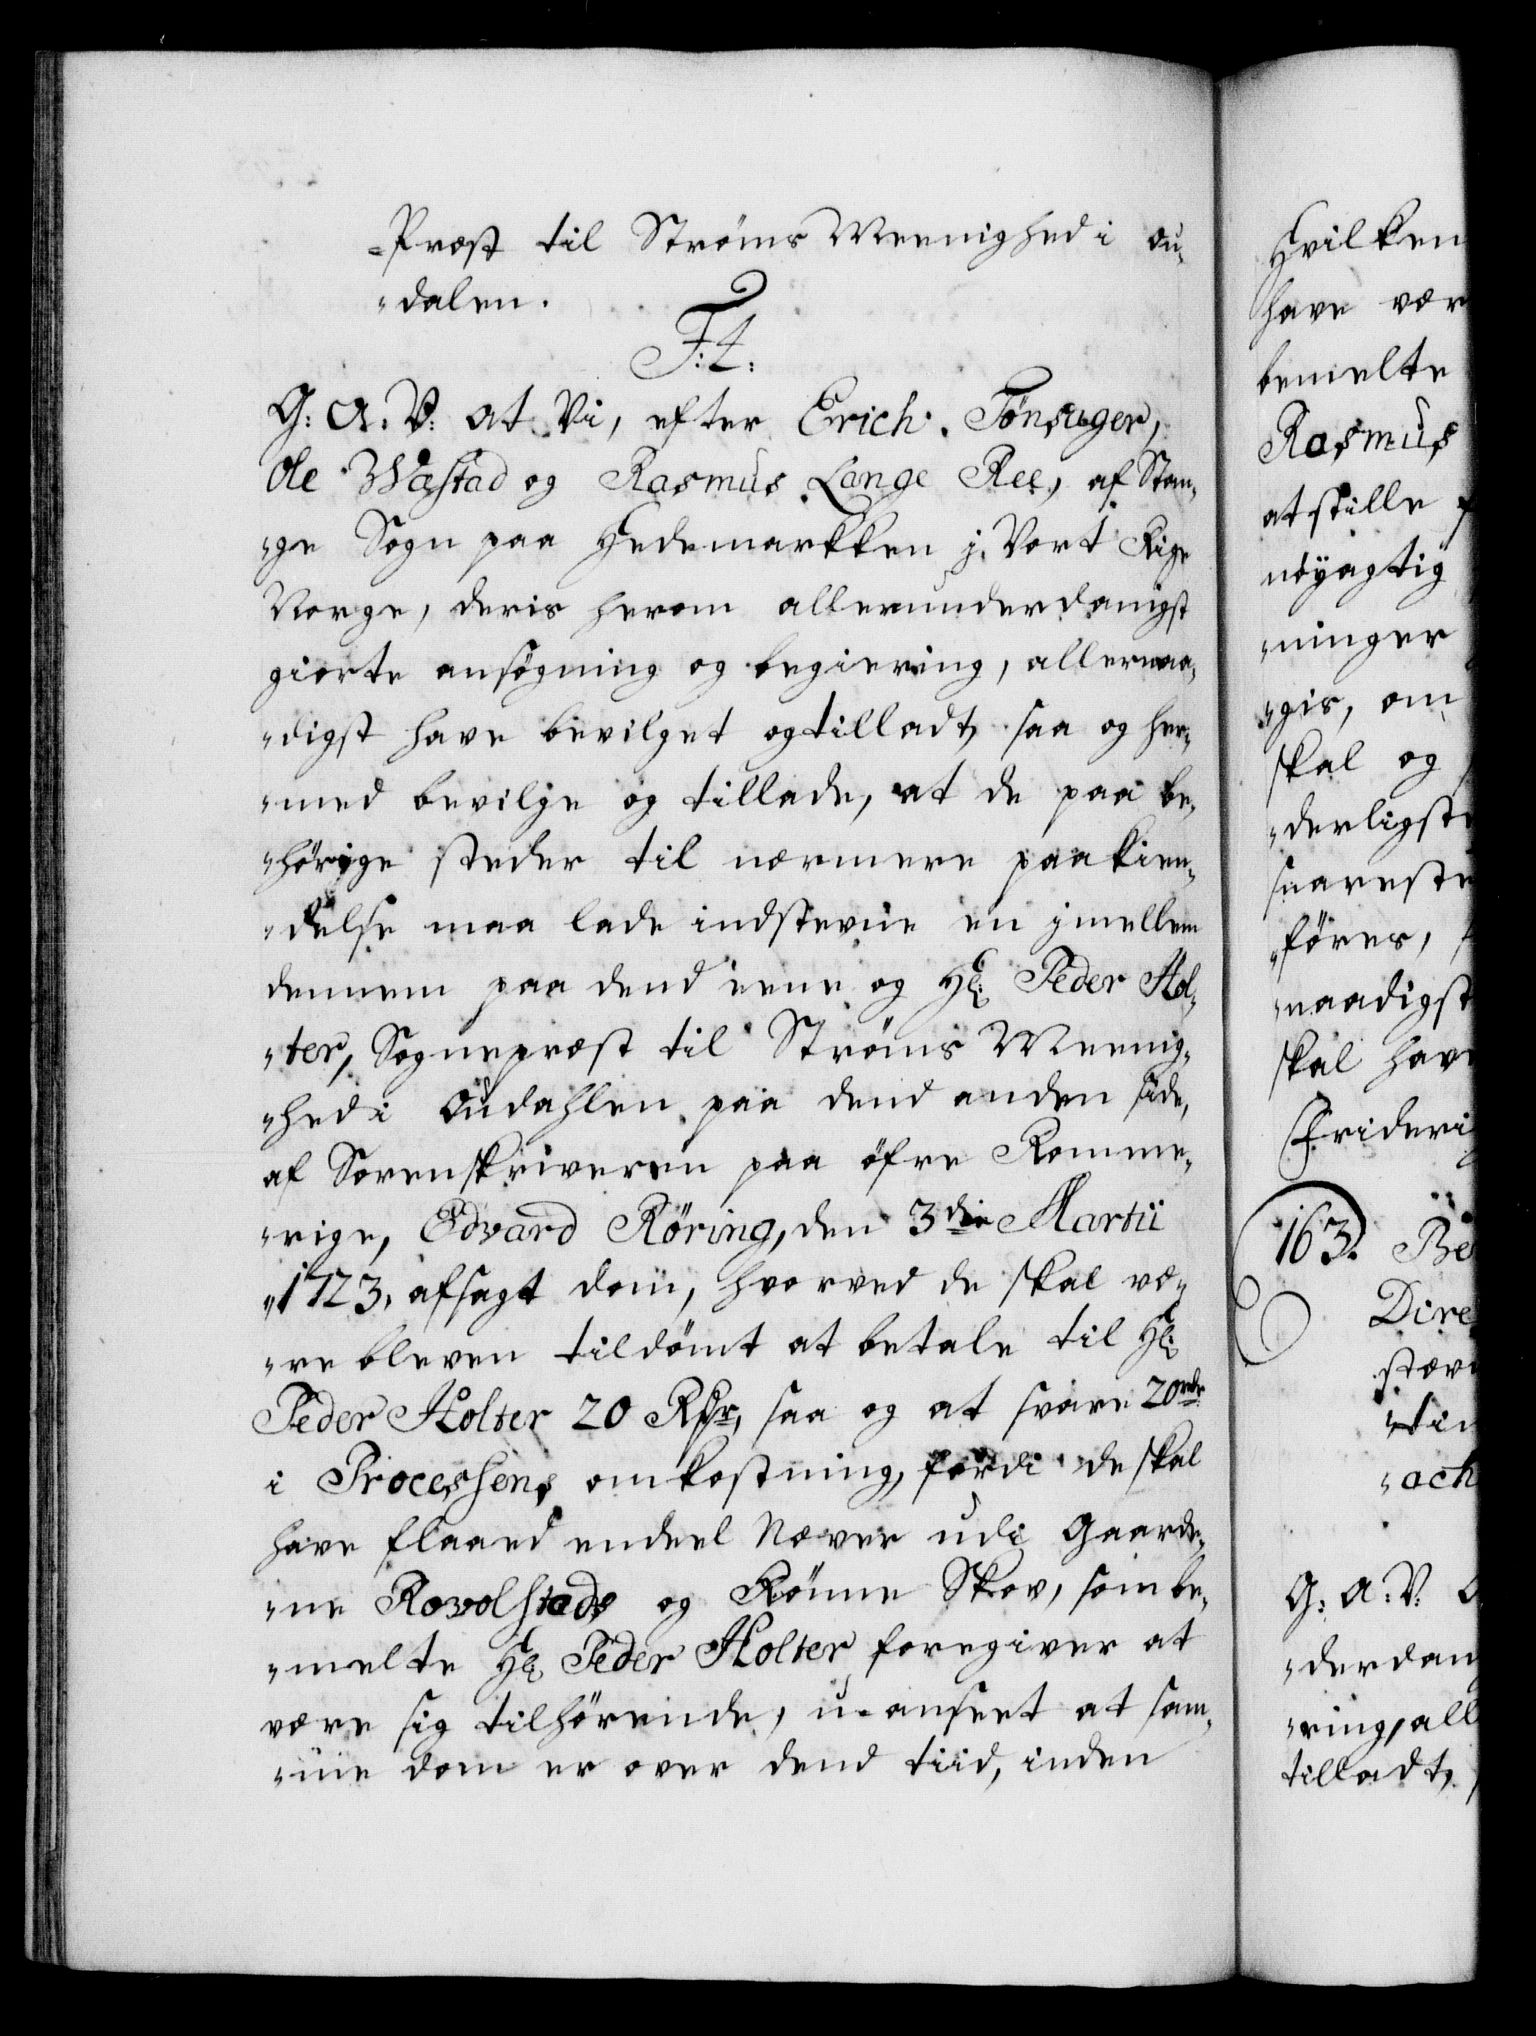 -Præst til Ströms Meenighed i Ou-
-dalen.
F: 4.
G: A. V: at Vi, efter Erich Tönsager,
Ole Wæstad og Rasmus Lange Ree, af Stan-
-ge Sogn paa Hedemarkken j Vort Rige
Norge, deris herom allerunderdanigst
giorte ansøgning og begiering, allernaa-
-digst have bevilget og tilladt, saa og her-
-med bevilge og tillade, at de paa be-
-hörige steder til nærmere paakien-
-delse maa lade indstevne en jmellem
dennem paa dend eene og Hr: Peder Hol-
-ter, Sognepræst til Ströms Meenig-
-hed i Oudahlen paa dend anden side,
af Sorenskriveren paa öfre Romme-
-rige, Edvard Röring, den 3die Martii
1723, afsagt dom, hvorved de skal væ-
-re bleven tildömt at betale til Hr:
Peder Holter 20 Rdr, saa og at svare 20 rdr
i Processens omkostning, fordi de skal
have flaaed endeel Næver udi Gaarde-
-ne Rovolstads og Rönne Skov, som be-
-melte Hr: Peder Holter foregiver at
være sig tilhörende, u-anseet at sam-
-me dom er over dend tiid, inden
Hvilken
have vær
bemelte
Rasmus
at stille
nöyagtig
-ninger
-gis, om
skal og
-derligste
snareste
-föres,
-naadigst
skal have
Frideri
163. Be
Dire
stæv
-tin
-ach
G: A: V:
-derdan
-ring, all
tilladt,